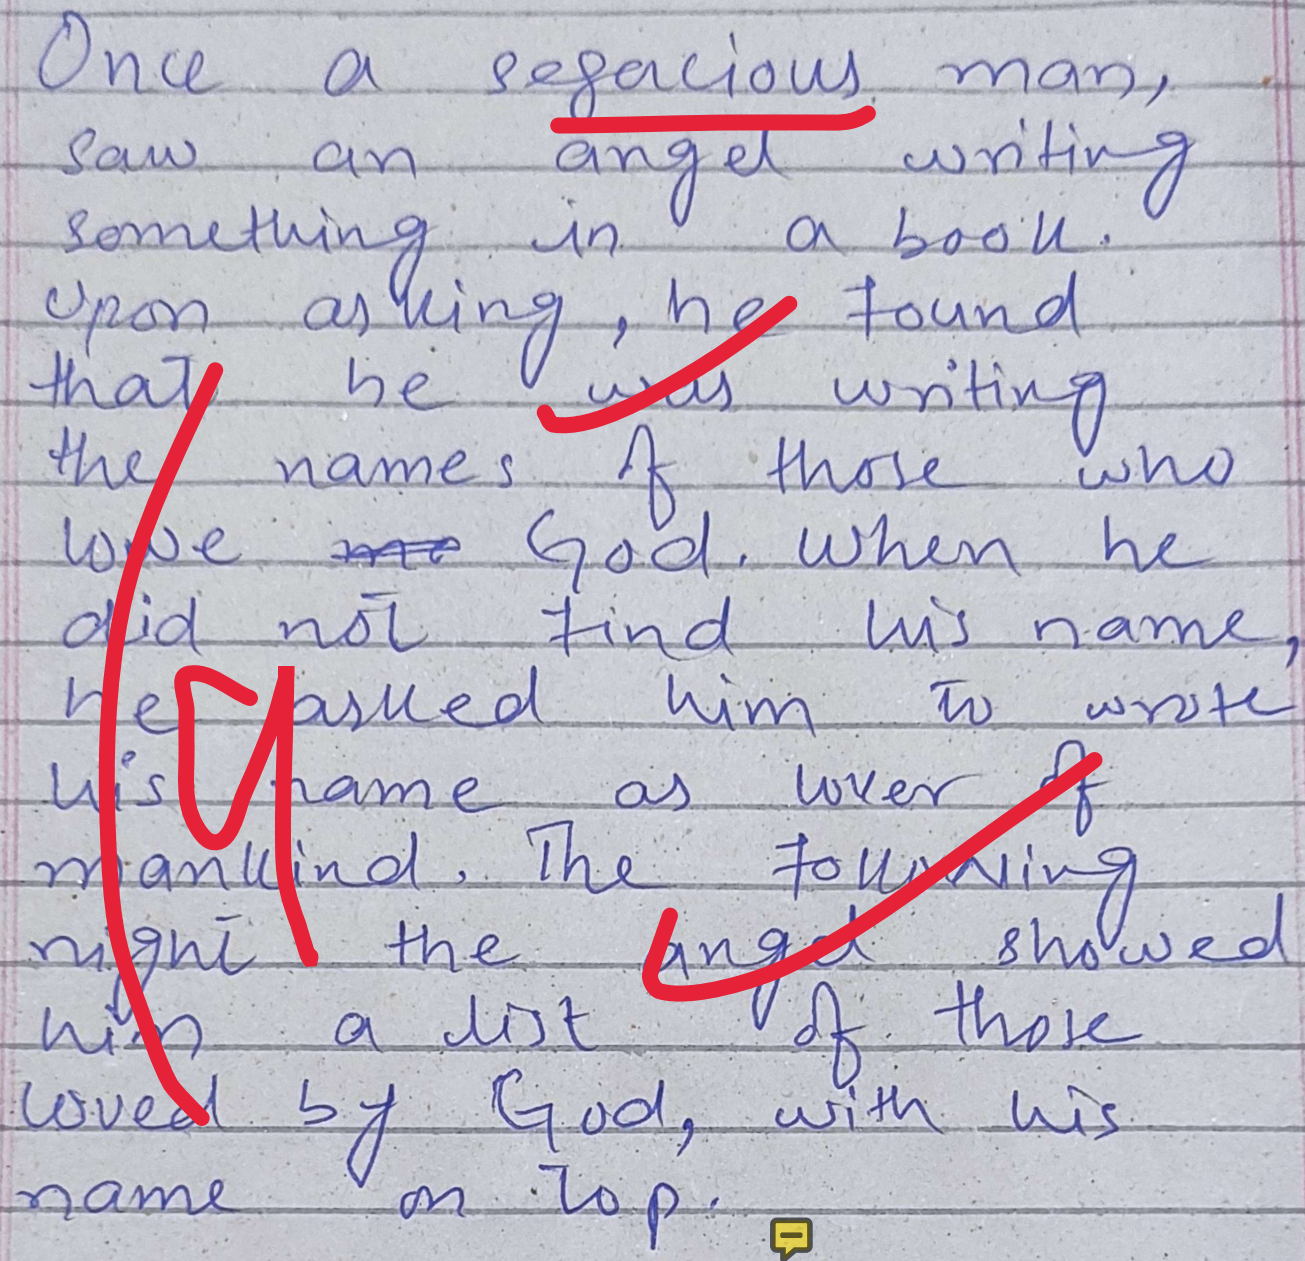 Once a segacious man,
saw an angel writing
something in a book.
Upon asking, he found
that he was writing
the names of those who
love God. When he
did not find his name,
he asked him to wrote
his name as lover of
mankind. The following
night the angel showed
him a list of those
loved by God, with his
name on top.